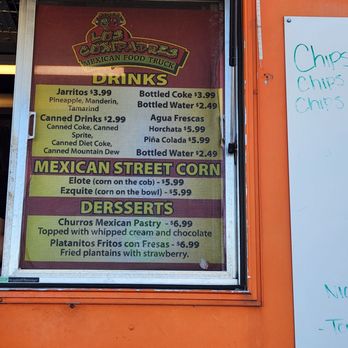 LOS
COMPADRES
MEXICAN FOOD TRUCK
DRINKS
Jarritos $3.99
Pineapple, Manderin,
Tamarind
Canned Drinks $2.99
Canned Coke, Canned
Sprite,
Canned Diet Coke,
Canned Mountain Dew
Bottled Coke $3.99
Bottled Water $2.49
Agua Frescas
Horchata $5.99
Piña Colada $5.99
Bottled Water $2.49
MEXICAN STREET CORN
Elote (corn on the cob) - $5.99
Ezquite (corn on the bowl) - $5.99
DERSSERTS
Churros Mexican Pastry - $6.99
Topped with whipped cream and chocolate
Platanitos Fritos con Fresas - $6.99
Fried plantains with strawberry.
Chips
Chips
Chips